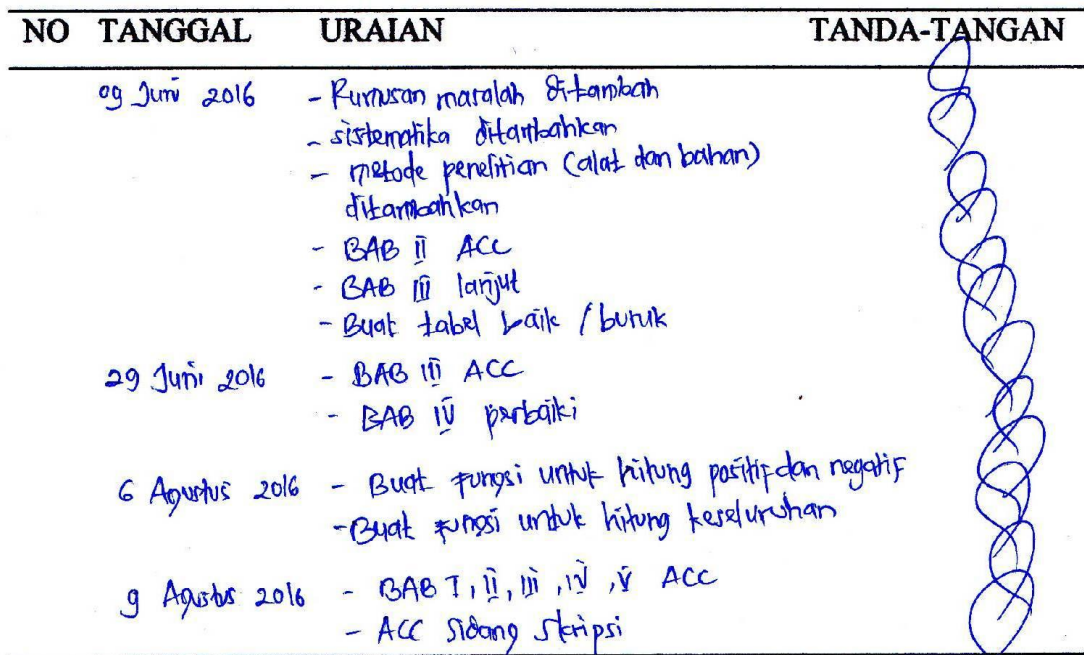 NO TANGGAL URAIAN TANDA-TANGAN
09 Juni 2016 - Rumusan masalah ditambah
- sistematika ditambahkan
- metode penelitian (alat dan bahan)
ditambahkan
- BAB II ACC
- BAB III lanjut
- Buat tabel baik / buruk
29 Juni 2016 - BAB III ACC
- BAB IV perbaiki
6 Agustus 2016 - Buat fungsi untuk hitung positif dan negatif
- Buat fungsi untuk hitung keseluruhan
9 Agustus 2016 - BAB I, II, III, IV, V ACC
- ACC Sidang skripsi